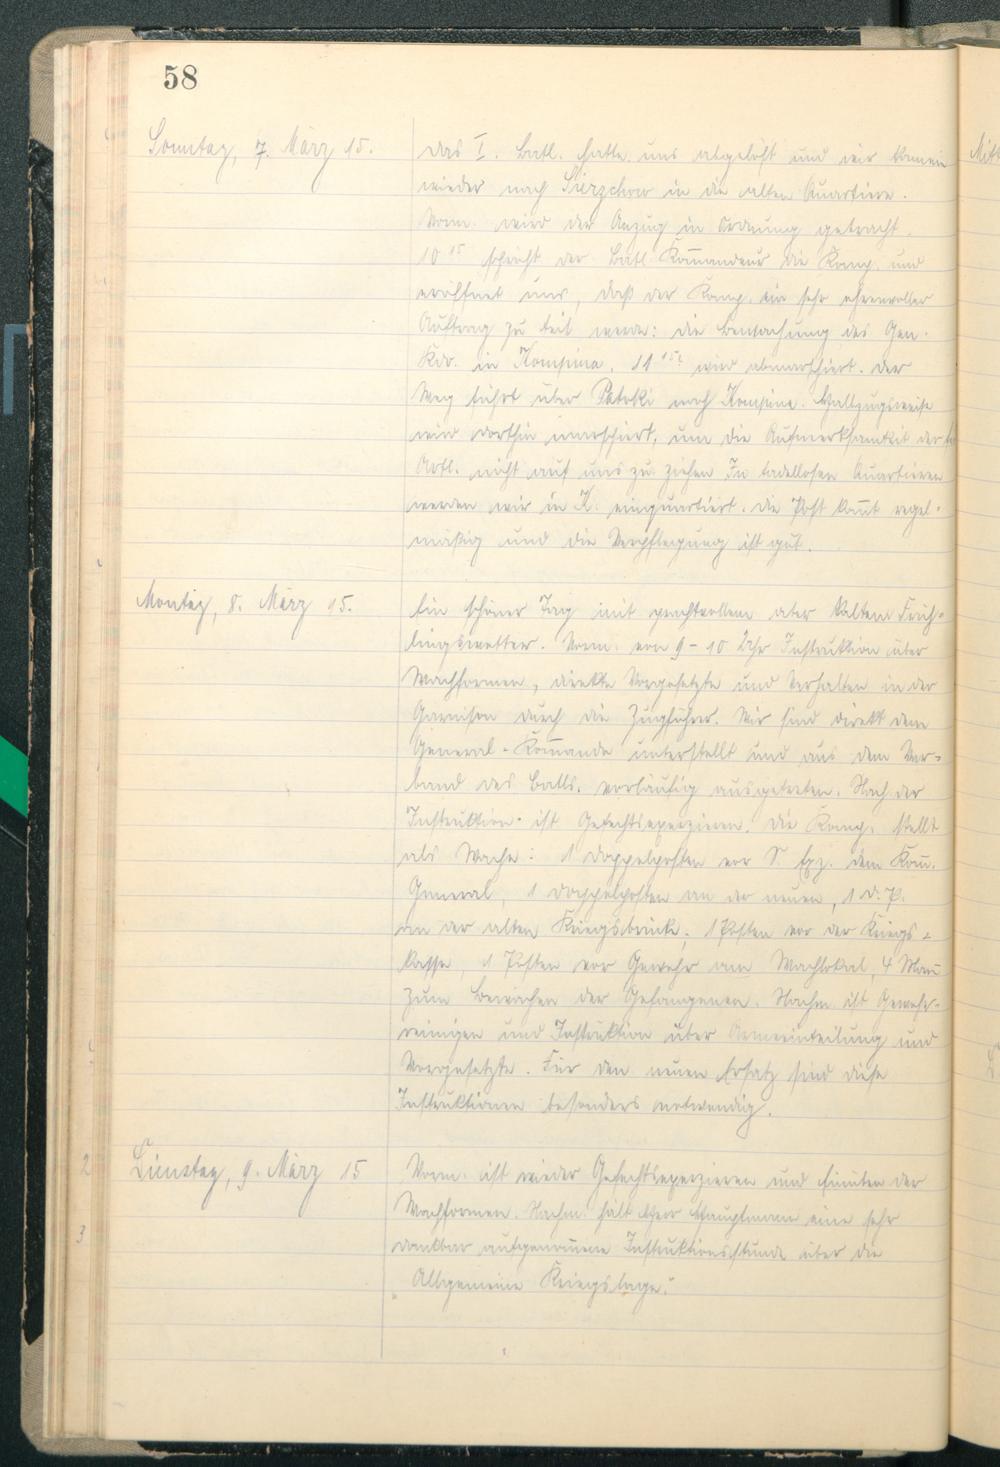 58
Sonntag, 7. März 15.
Das I. Batl. hatte uns abgelöst und wir kamen
wieder nach Sierzchow in die alten Quartiere.
Vorm. wird der Anzug in Ordnung gebracht.
10 15 spricht der Batl. Kom̄andeur die Komp. und
eröffnet uns, daß der Komp. ein sehr ehrenvoller
Auftrag zu teil werde: die Bewachung des Gen.
Kdo. in Kompina. 11 wird abmarschiert. Der
Weg führt über Patoki nach Kompina. Halbzugsweise
wird dorthin marschiert, um die Aufmerksamkeit der
Artl. nicht auf uns zu ziehen In tadellosen Quartieren
werden wir in K. einquartiert. Die Post kom̄t regel-
mäßig und die Verpflegung ist gut.
Montag, 8. März 15.
Ein schöner Tag mit prachtvollem aber kaltem Früh-
lingswetter. Vorm. von 9-10 Uhr Instruktion über
Wachformen, direkte Vorgesetzte und Verhalten in der
Garnison durch die Zugführer. Wir sind direkt dem
General-Kom̄ando unterstellt und aus dem Ver-
band des Batls. vorläufig ausgetreten. Nach der
Instruktion ist Gefechtsexerzieren. Die Komp. stellt
als Wache: 1 Doppelposten vor S. Exz. dem Kom̄.
General, 1 Doppelposten an der neuen, 1 D.P.
an der alten Kriegsbrücke, 1 Posten vor der Kriegs-
kasse, 1 Posten vor Gewehr am Wachlokal, 4 Man̄
zum Bewachen der Gefangenen. Nachm. ist Gewehr-
reinigen und Instruktion über Armeeinteilung und
Vorgesetzte. Für den neuen Ersatz sind diese
Instruktionen besonders notwendig.
Dienstag, 9. März 15
Vorm. ist wieder Gefechtsexerzieren und Einüben der
Wachformen. Nachm. hält Herr Hauptmann eine sehr
dankbar aufgenom̄ene Instruktionsstunde über die
Allgemeine Kriegslage."